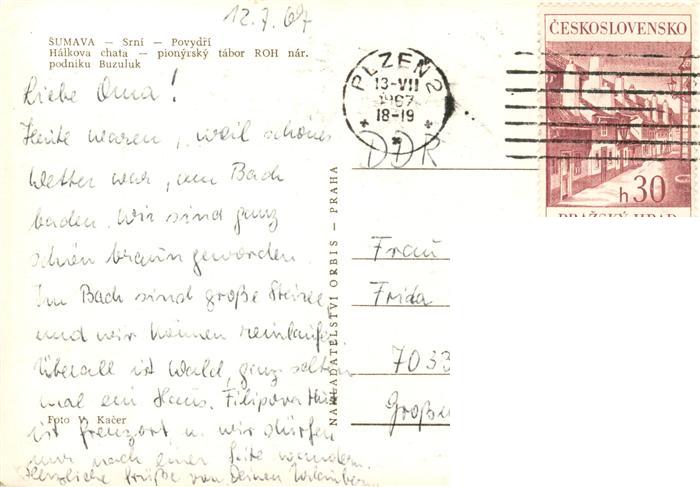 12.7.67
ŠUMAVA – Srní – Povydří
Hálkova chata – pionýrský tábor ROH nár.
podniku Buzuluk
Liebe Oma!
Heute waren, weil schönes
Wetter war, am Bach
baden. Wir sind ganz
schön braun geworden.
Im Bach sind große Steine
und wir können reinlaufen
Überall ist Wald, ganz selten
mal ein Haus. Filipova Huť
ist Grenzort u. wir dürfen
nur nach einer Seite wandern.
Herzliche Grüße von Deinen Urlaubern
Foto V. Kačer
NAKLADATELSTVÍ ORBIS – PRAHA
PLZEŇ 2
13-VII
1967
18-19
ČESKOSLOVENSKO
h 30
PRAŽSKÝ HRAD
DDR
Frau
Frida
7033
Große